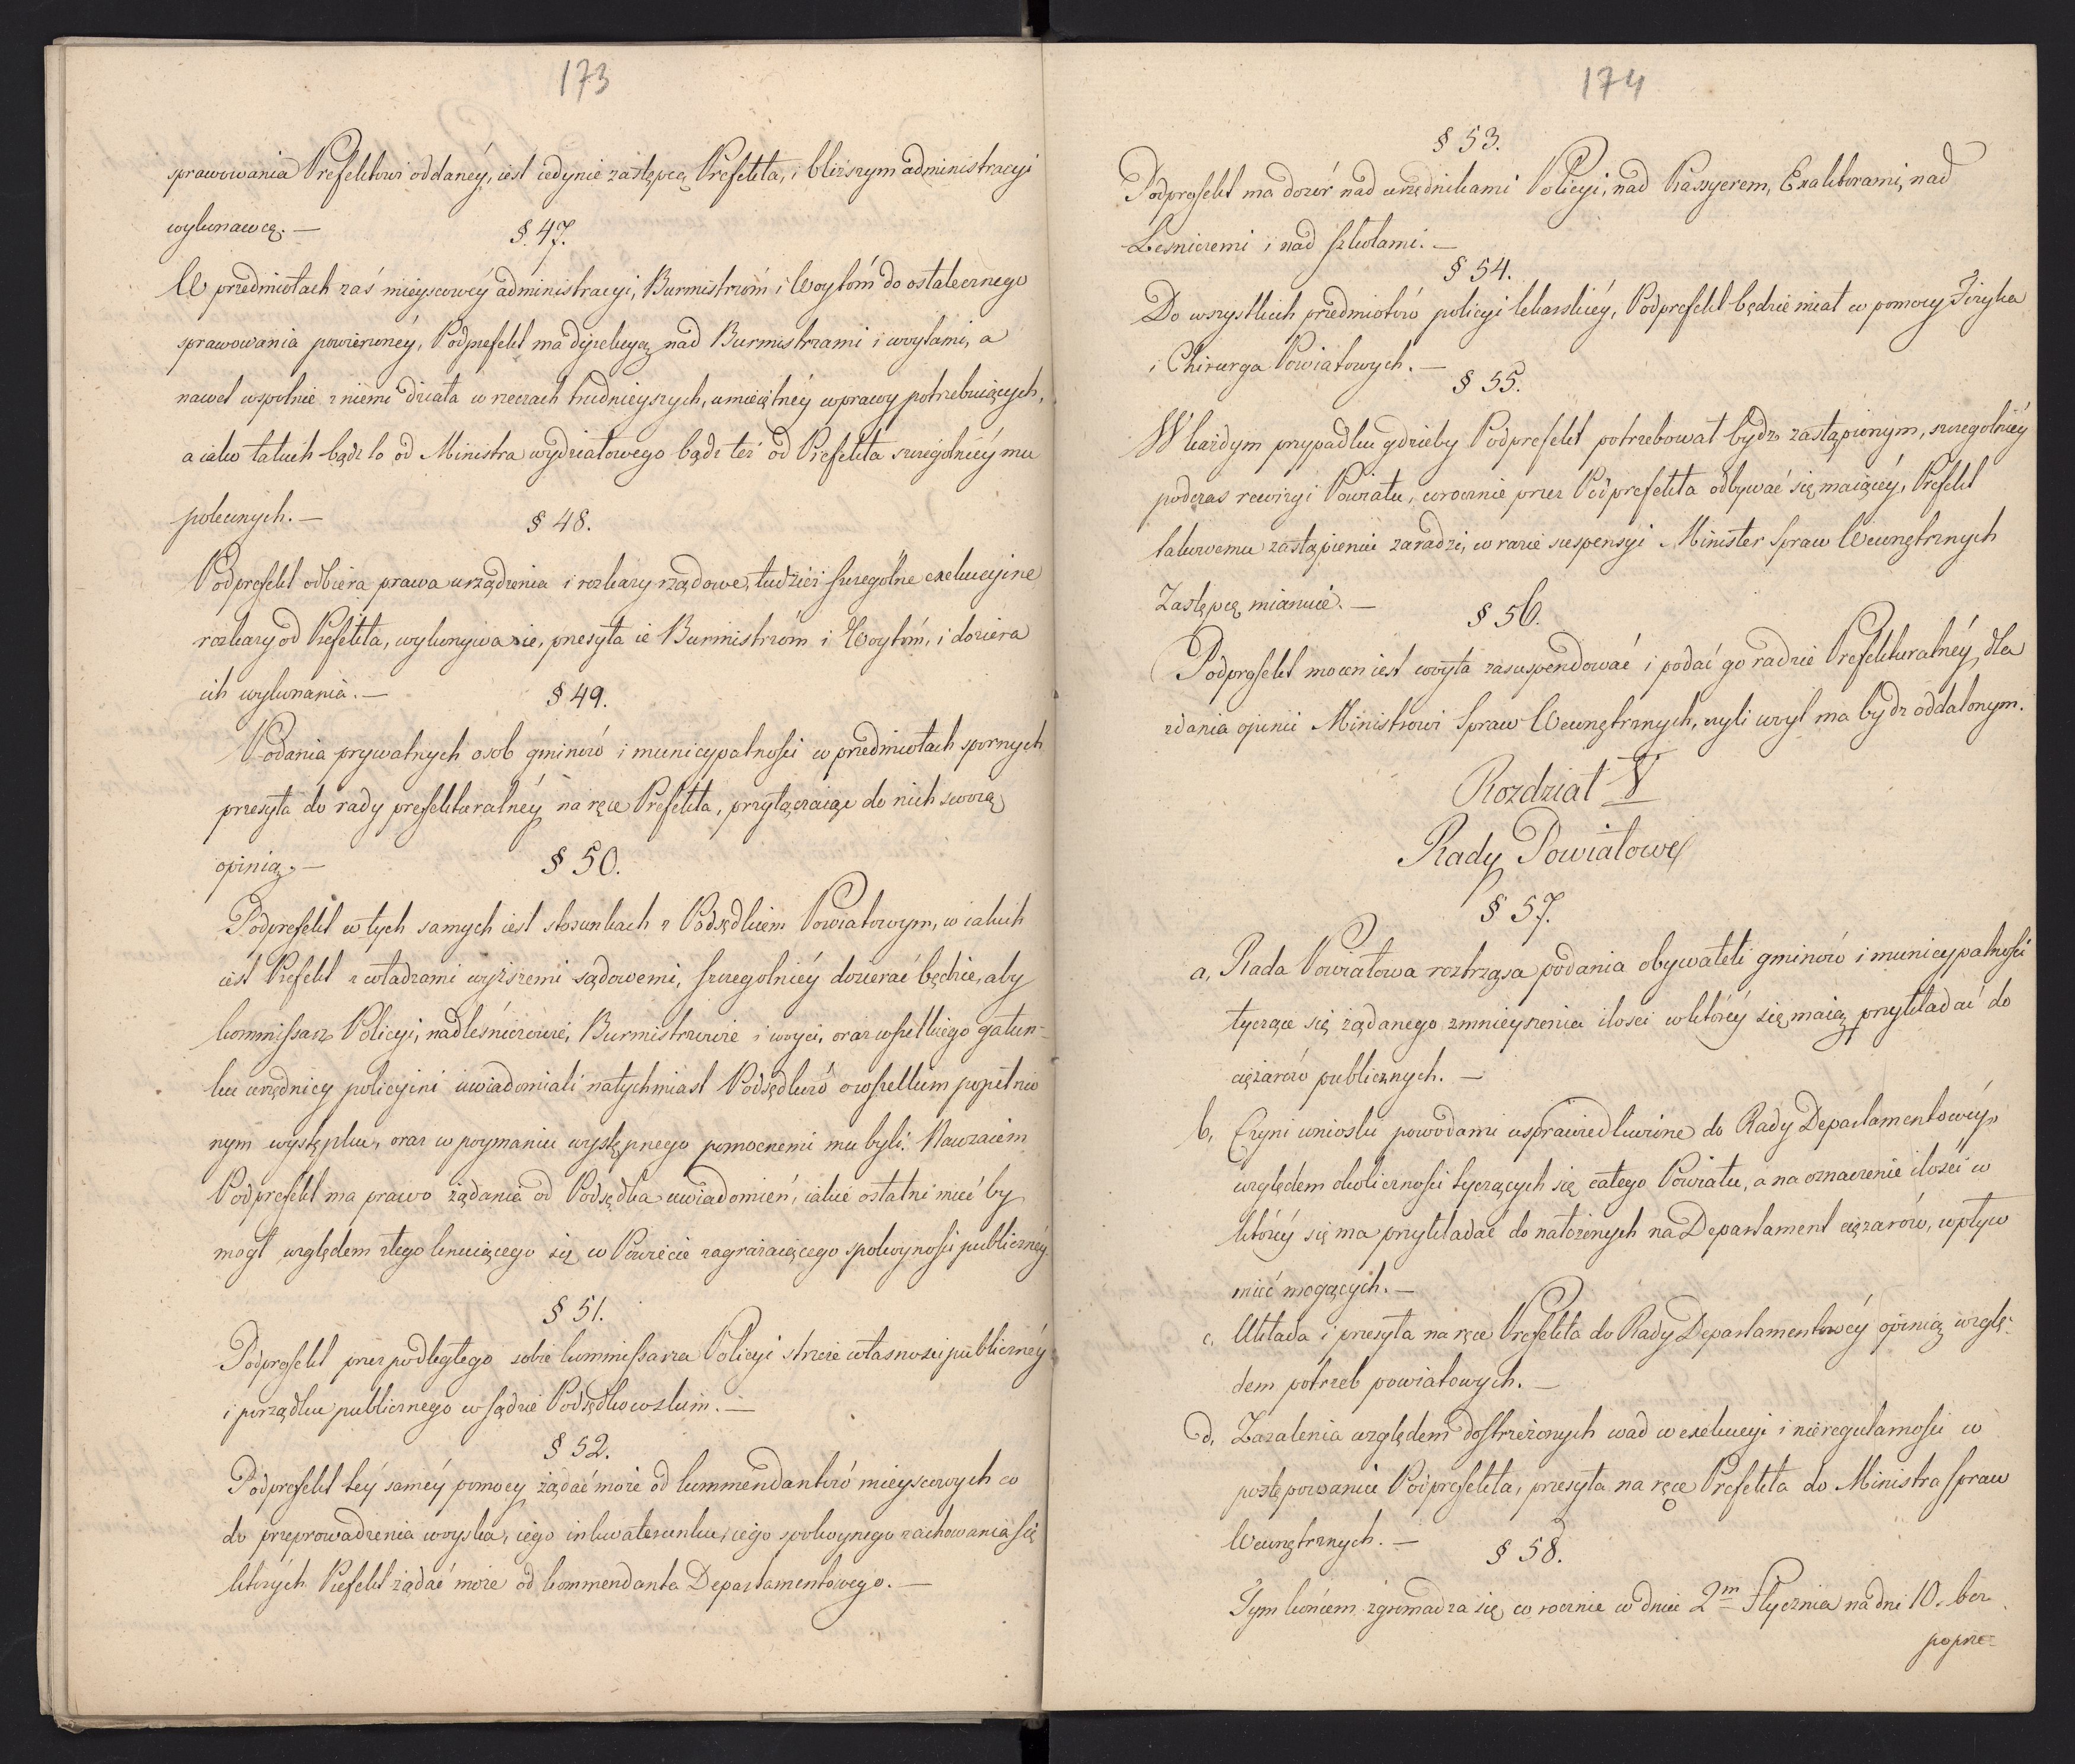 173
sprawowania Prefektowi oddanéy, iest iedynie zastępcą Prefekta, i bliższym administracyi
wykonawcą. —
§. 47.
W przedmiotach zaś mieyscowéy administracyi, Burmistrzóm i Woytóm do ostatecznego
sprawowania powierzonéy, Podprefekt ma dyrekcyą nad Burmistrzami i woytami, a
nawet wspolnie z niemi działa w rzeczach trudnieyszych, umieiętnéy wprawy potrzebuiących,
a iako takich bądz to od Ministra wydziałowego bądz też od Prefekta szczególniéy mu
poleconych. —
§ 48.
Podprefekt odbiera prawa urządzenia i rozkazy rządowe, tudzież szczegolne exekucyine
rozkazy od Prefekta, wykonywa ie, przesyła ie Burmistrzóm i Woytóm, i doziera
ich wykonania. —
§ 49.
Podania prywatnych osob gminów i municypalności w przedmiotach spornych
przesyła do rady prefekturalnéy na ręce Prefekta, przyłączaiąc do nich swoią
opinią. —
§ 50.
Podprefekt w tych samych iest stosunkach z Podsędkiem Powiatowym, w iakich
iest Prefekt z władzami wyższemi sądowemi, szczegolniéy dozierać będzie, aby
kommissarz Policyi, nadleśniczowie, Burmistrzowie i woyci, oraz wszelkiego gatun-
ku urzędnicy policyini uwiadomiali natychmiast Podsędków o wszelkim popełnio
nym występku, oraz w poymaniu występnego pomocnemi mu byli. Nawzaiem
Podprefekt ma prawo żądania od Podsędka uwiadomień, iakie ostatni mieć by
mogł względem złego knuiącego się w Powiecie zagrażaiącego spokoyności publicznéy.
§ 51.
Podprefekt przez podległego sobie kommissarza Policyi strzeże własności publicznéy
i porządku publicznego w sądzie Podsędkowskim. —
§ 52.
Podprefekt téy saméy pomocy żądać może od kommendantów mieyscowych co
do przeprowadzenia woyska, iego inkwaterunku, iego spokoynego zachowania się
których Prefekt żądać może od kommendanta Departamentowego. —
174
§ 53.
Podprefekt ma dozór nad urzędnikami Policyi, nad Kassyerem, Exaktorami, nad
Leśniczemi i nad szkołami. —
§ 54.
Do wszystkich przedmiotów policyi lekarskiéy, Podprefekt będzie miał w pomocy Fizyka
i Chirurga Powiatowych. —
§ 55.
W każdym przypadku gdzieby Podprefekt potrzebował bydz zastąpionym, szczegolniéy
podczas rewizyi Powiatu, corocznie przez Podprefekta odbywać się maiącéy, Prefekt
takowemu zastąpieniu zaradzi, w razie suspensyi Minister Spraw Wewnętrznych
Zastępcę mianuie. —
§ 56.
Podprefekt mocen iest woyta zasuspendować i podać go radzie Prefekturalnéy, dla
zdania opinii Ministrowi Spraw Wewnętrznych, czyli woyt ma bydz oddalonym.
Rozdział V
Rady Powiatowe
§ 57.
a, Rada Powiatowa roztrząsa podania obywateli gminów i municypalności
tyczące się żądanego zmnieyszenia ilosci w któréy się maią przykładać do
ciężarów publicznych. —
b, Czyni wnioski powodami usprawiedliwione do Rady Departamentowéy,
względem okoliczności tyczących się całego Powiatu, a na oznaczenie ilości w
któréy się ma przykładać do nałożonych na Departament ciężarów, wpływ
mieć mogących. —
c, Układa i przesyła na ręce Prefekta do Rady Departamentowéy opinią wzglę-
dem potrzeb powiatowych. —
d, Zażalenia względem dostrzeżonych wad w exekucyi i nieregularności w
postępowaniu Podprefekta, przesyła na ręce Prefekta do Ministra spraw
Wewnętrznych. —
§ 58.
Tym końcem zgromadza się co rocznie w dniu 2m Stycznia na dni 10. bez
poprze-